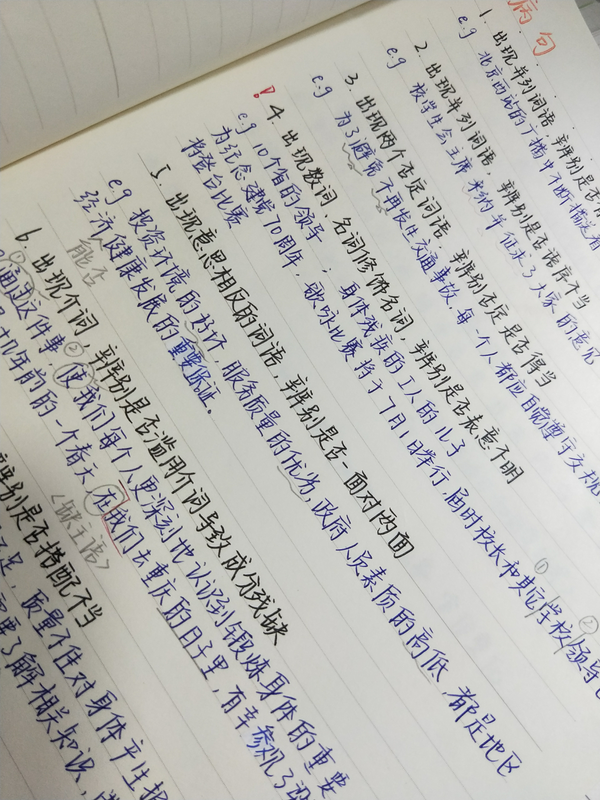 病句
1. 出现并列词语，辨别是否
e.g 北京西站的广播中不断播送着
2. 出现并列词语，辨别是否语序不当
e.g 校学生会主席 采纳并征求了大家的意见
3. 出现两个否定词语，辨别否定是否得当
e.g 为了避免不再发生交通事故，每一个人都应自觉遵守交规
! 4. 出现数词，名词修饰名词，辨别是否表意不明
e.g 10个省的领导 身体残疾的工人的儿子
为纪念建党70周年，歌咏比赛将于7月1日举行，届时校长和其它学校领导
将登台比赛
① ②
5. 出现意思相反的词语，辨别是否一面对两面
e.g 投资环境的好坏，服务质量的优劣，政府人员素质的高低，都是地区
经济健康发展的重要保证。
能否
6. 出现介词，辨别是否滥用介词导致成分残缺
①通过这件事，②使我们每个人更深刻地认识到锻炼身体的重要
几年前的一个春天，在我们去重庆的日子里，有幸参观了
<缺主语>
辨别是否搭配不当
足，质量不佳对身体产生
需要了解相关知识，